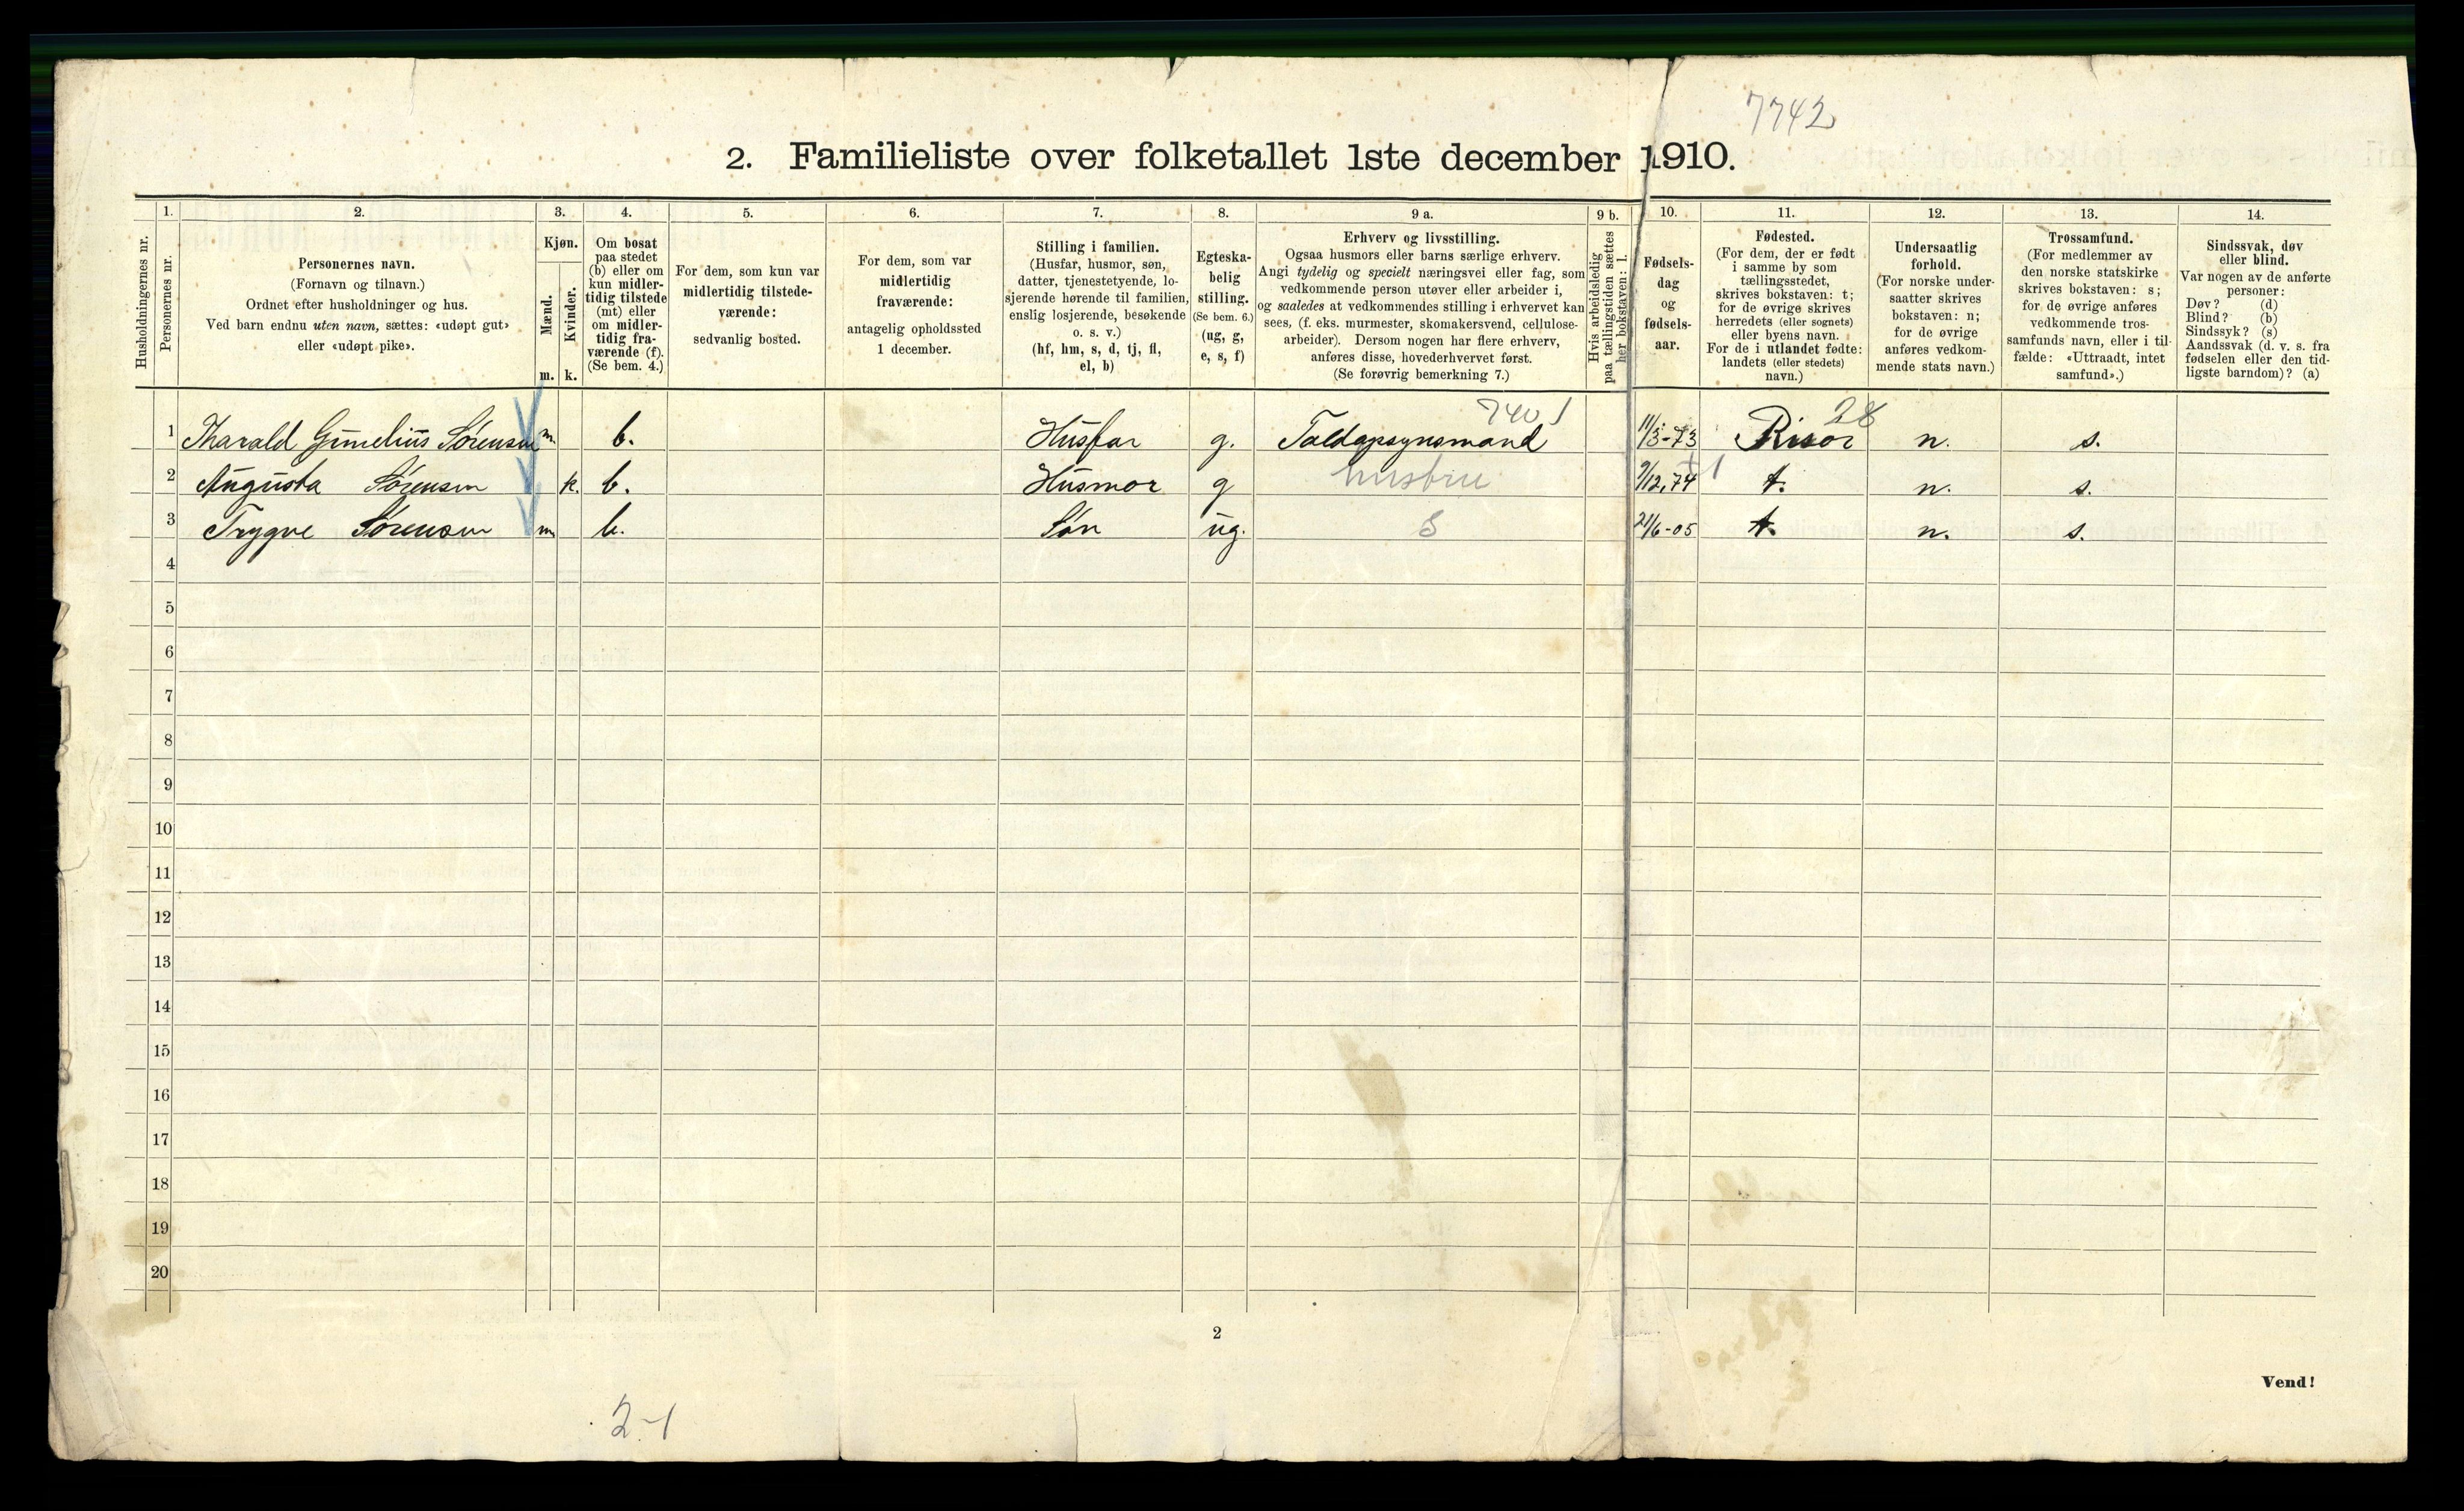 7742
2. Familieliste over folketallet 1ste december 1910.
Husholdningernes nr.
1.
Personernes nr.
2.
Personernes navn.
(Fornavn og tilnavn.)
Ordnet efter husholdninger og hus.
Ved barn endnu uten navn, sættes: «udøpt gut»
eller «udøpt pike».
3.
Kjøn.
Mænd.
m.
Kvinder.
k.
4.
Om bosat
paa stedet
(b) eller om
kun midler-
tidig tilstede
(mt) eller
om midler-
tidig fra-
værende (f).
(Se bem. 4.)
5.
For dem, som kun var
midlertidig tilstede-
værende:
sedvanlig bosted.
6.
For dem, som var
midlertidig
fraværende:
antagelig opholdssted
1 december.
7.
Stilling i familien.
(Husfar, husmor, søn,
datter, tjenestetyende, lo-
sjerende hørende til familien,
enslig losjerende, besøkende
o. s. v.)
(hf, hm, s, d, tj, fl,
el, b)
8.
Egteska-
belig
stilling.
(Se bem. 6.)
(ug, g,
e, s, f)
9 a.
Erhverv og livsstilling.
Ogsaa husmors eller barns særlige erhverv.
Angi tydelig og specielt næringsvei eller fag, som
vedkommende person utøver eller arbeider i,
og saaledes at vedkommendes stilling i erhvervet kan
sees, (f. eks. murmester, skomakersvend, cellulose-
arbeider). Dersom nogen har flere erhverv,
anføres disse, hovederhvervet først.
(Se forøvrig bemerkning 7.)
9 b.
Hvis arbeidsledig
paa tællingstiden sættes
her bokstaven: l.
10.
Fødsels-
dag
og
fødsels-
aar.
11.
Fødested.
(For dem, der er født
i samme by som
tællingsstedet,
skrives bokstaven: t;
for de øvrige skrives
herredets (eller sognets)
eller byens navn.
For de i utlandet fødte:
landets (eller stedets)
navn.)
12.
Undersaatlig
forhold.
(For norske under-
saatter skrives
bokstaven: n;
for de øvrige
anføres vedkom-
mende stats navn.)
13.
Trossamfund.
(For medlemmer av
den norske statskirke
skrives bokstaven: s;
for de øvrige anføres
vedkommende tros-
samfunds navn, eller i til-
fælde: «Uttraadt, intet
samfund».)
14.
Sindssvak, døv
eller blind.
Var nogen av de anførte
personer:
Døv? (d)
Blind? (b)
Sindssyk? (s)
Aandssvak (d. v. s. fra
fødselen eller den tid-
ligste barndom)? (a)
740 1 28
1 Tharald Gunelius Sørensen m. b. Husfar g. Toldopsynsmand 11/3-73 Risør n. s.
2 Augusta Sørensen k. b. Husmor g hustru 9/12,74 t. n. s.
3 Trygve Sørensen m b. Søn ug. S 21/6-05 t. n. s.
4
5
6
7
8
9
10
11
12
13
14
15
16
17
18
19
20
2
Vend!
2-1